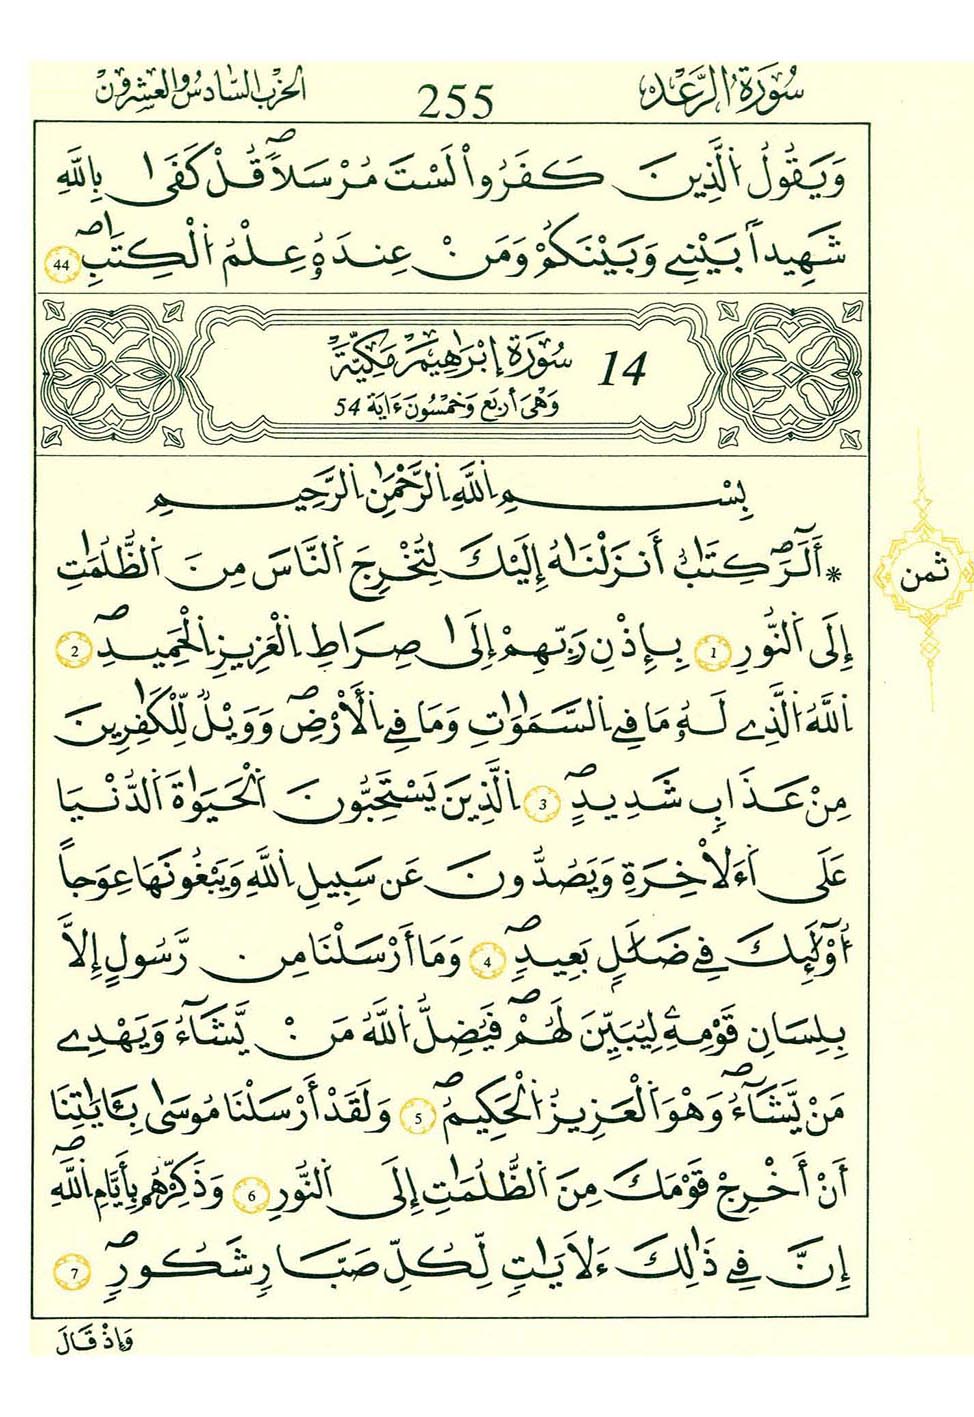 سُورَةُ الرَّعْدِ 255 الحزب السادس والعشرون
وَيَقُولُ اُ۬لذِينَ كَفَرُواْ لَسْتَ مُرْسَلاٗۖ قُلْ كَف۪ىٰ بِاللَّهِ
شَهِيداَۢ بَيْنِے وَبَيْنَكُمْ وَمَنْ عِندَهُۥ عِلْمُ اُ۬لْكِتَٰبِۖ 44
14 سُورَةُ إِبْرَاهِيمَ مَكِّيَّةٌ
وَهْىَ أَرْبَع وَخَمْسُونَ ءَايَة 54
بِسْمِ اِ۬للَّهِ اِ۬لرَّحْمَٰنِ اِ۬لرَّحِيمِ
* أَلَٓرَۖ كِتَٰبٌ أَنزَلْنَٰهُ إِلَيْكَ لِتُخْرِجَ اَ۬لنَّاسَ مِنَ اَ۬لظُّلُمَٰتِ
إِلَى اَ۬لنُّورِ 1 بِإِذْنِ رَبِّهِمْ إِلَىٰ صِرَٰطِ اِ۬لْعَزِيزِ اِ۬لْحَمِيدِۖ 2
اِ۬للَّهُ اُ۬لذِے لَهُۥ مَا فِے اِ۬لسَّمَٰوَٰتِ وَمَا فِے اِ۬لْأَرْضِۖ وَوَيْلٞ لِّلْكٰ۪فِرِينَ
مِنْ عَذَابٖ شَدِيدٍۖ 3 اِ۬لذِينَ يَسْتَحِبُّونَ اَ۬لْحَيَوٰةَ اَ۬لدُّنْي۪ا
عَلَى اَ۬ءَلاْخِرَةِ وَيَصُدُّونَ عَن سَبِيلِ اِ۬للَّهِ وَيَبْغُونَهَا عِوَجاً
اُ۟وْلَٰٓئِكَ فِے ضَلَٰلِۢ بَعِيدٖۖ 4 وَمَا أَرْسَلْنَا مِن رَّسُولٍ إِلاَّ
بِلِسَانِ قَوْمِهِۦ لِيُبَيِّنَ لَهُمْۖ فَيُضِلُّ اُ۬للَّهُ مَنْ يَّشَآءُ وَيَهْدِے
مَنْ يَّشَآءُۖ وَهْوَ اَ۬لْعَزِيزُ اُ۬لْحَكِيمُۖ 5 وَلَقَدْ أَرْسَلْنَا مُوس۪ىٰ بِـَٔايَٰتِنَا
أَنْ أَخْرِجْ قَوْمَكَ مِنَ اَ۬لظُّلُمَٰتِ إِلَى اَ۬لنُّورِ 6 وَذَكِّرْهُم بِأَيَّٰمِ اِ۬للَّهِۖ
إِنَّ فِے ذَٰلِكَ ءَلَايَٰتٖ لِّكُلِّ صَبّ۪ارٖ شَكُورٖۖ 7
وَإِذْ قَالَ
ثمن